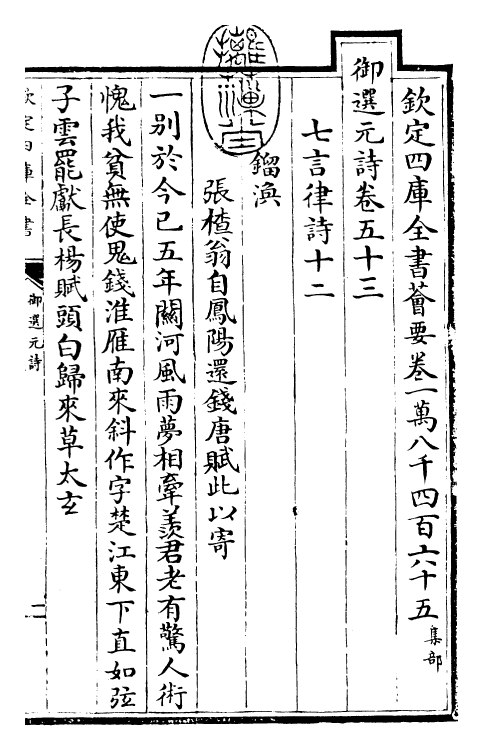 欽定四庫全書薈要卷一萬八千四百六十五 集部
御選元詩卷五十三
七言律詩十二
鎦渙
張楂翁自鳳陽還錢唐賦此以寄
一别於今已五年關河風雨夢相牽羡君老有驚人術
愧我貧無使鬼錢淮雁南來斜作字楚江東下直如弦
子雲罷獻長楊賦頭白歸來草太𤣥
欽定四庫全書
御選元詩